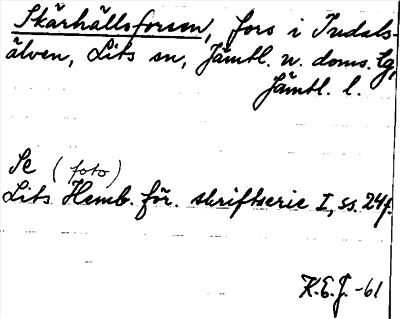 Skärhällsforsen, fors i Indals-
älven, Lits sn, Jämtl. n. doms. lg,
Jämtl. l.
Se (foto)
Lits Hemb. för. skriftserie I, ss. 24f.
K.E.J. -61